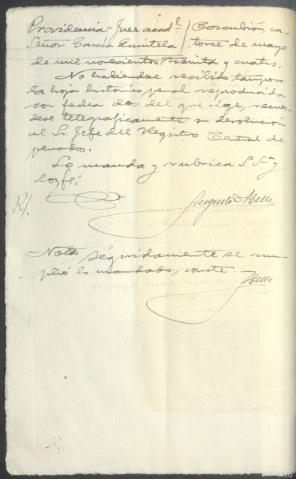 Providencia - Juez accdl. / Corcubión, ca-
Señor García Quintela / torce de mayo
de mil novecientos treinta y cuatro.
No habiéndose recibido tampoco
la hoja histórico penal reproducida
con fecha dos del que rige, recuér-
dese telegráficamente su devolución
al Sr. Jefe del Registro Central de
penados.
Lo manda y rubrica S. Sª y
doy fé.
R/.
Nota Seguidamente se cum-
plió lo mandado, conste.